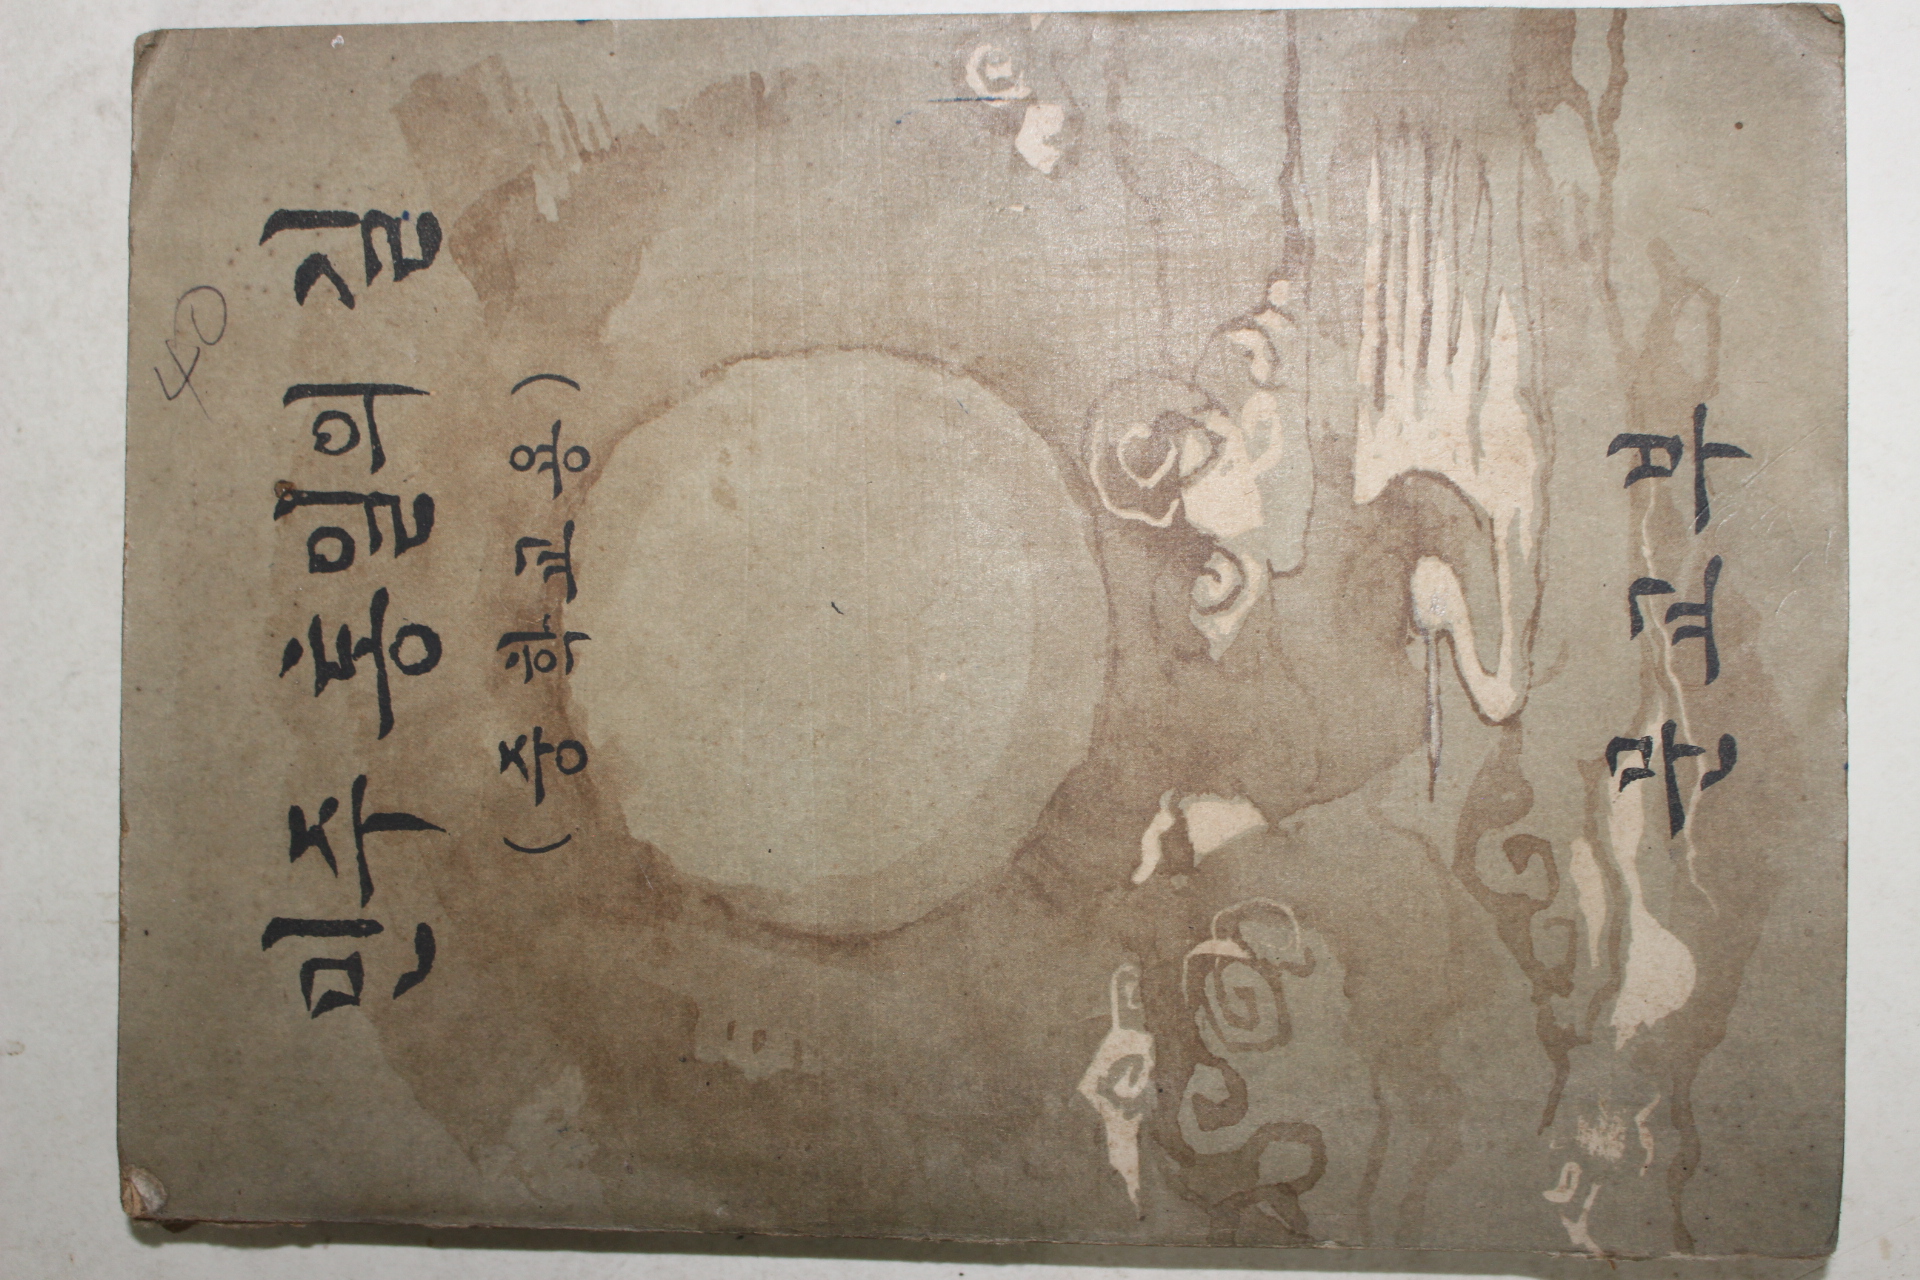 40
민주 통일의 길
(중학교용)
문교부